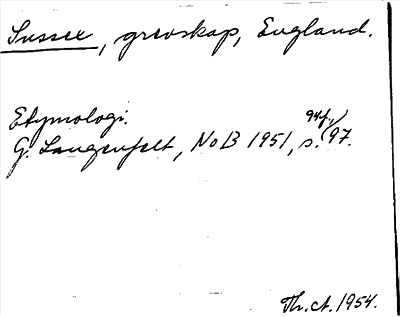 Sussex, grevskap, England.
Etymologi.
G. Langenfelt, NoB 1951, s. 94f., 97.
Th. A. 1954.